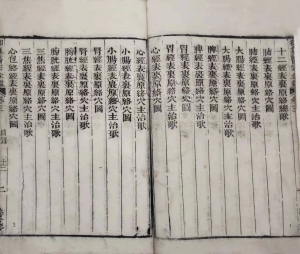 十二經表裏原絡總歌
肺經表裏原絡穴圖
肺經表裏原絡穴主治歌
大腸經表裏原絡穴圖
大腸經表裏原絡穴主治歌
脾經表裏原絡穴圖
脾經表裏原絡穴主治歌
胃經表裏原絡穴圖
胃經表裏原絡穴主治歌
心經表裏原絡穴圖
心經表裏原絡穴主治歌
小腸經表裏原絡穴圖
小腸經表裏原絡穴主治歌
腎經表裏原絡穴圖
腎經表裏原絡穴主治歌
膀胱經表裏原絡穴圖
膀胱經表裏原絡穴主治歌
三焦經表裏原絡穴圖
三焦經表裏原絡穴主治歌
心包經表裏原絡穴圖